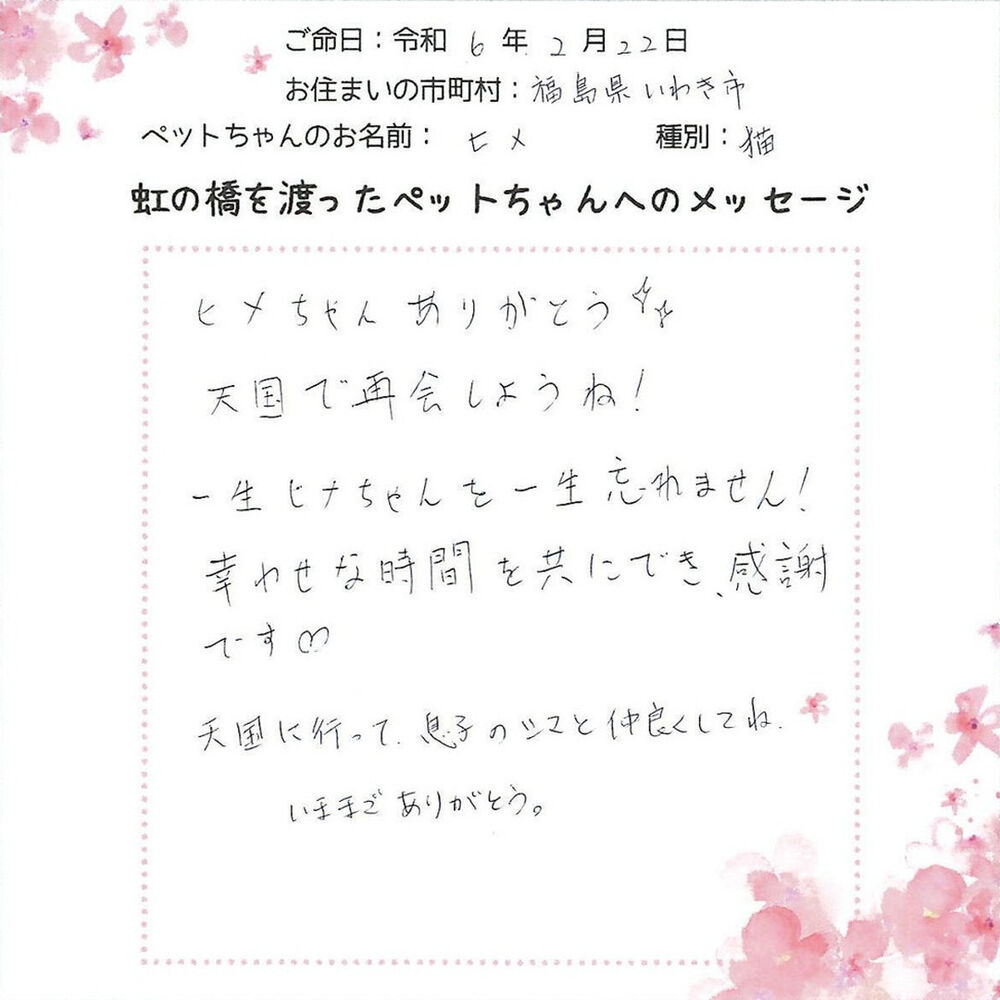 ご命日：令和 6 年 2 月 22 日
お住まいの市町村：福島県いわき市
ペットちゃんのお名前： ヒメ 種別：猫
虹の橋を渡ったペットちゃんへのメッセージ
ヒメちゃんありがとう
天国で再会しようね！
一生ヒナちゃんを一生忘れません！
幸わせな時間を共にでき、感謝
です♡
天国に行って、息子のシマと仲良くしてね。
いままでありがとう。